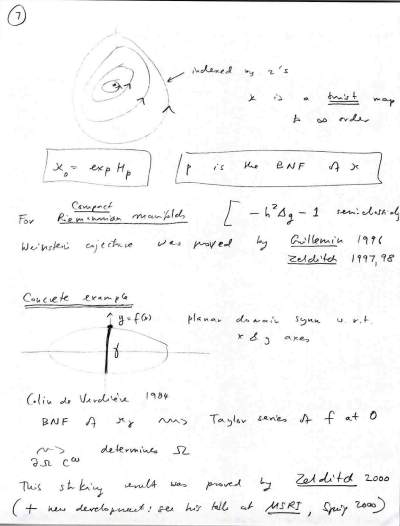 7
indexed by z's
x is a twist map
to ∞ order
x₀ = exp H_p
p is the BNF of x
For Compact Riemannian manifolds [ -h²Δg - 1 semiclassically
Weinstein conjecture was proved by Guillemin 1996
Zelditch 1997, 98
Concrete example
y = f(x)
planar domain symm w.r.t.
x & y axes
γ
Colin de Verdière 1984
BNF of xγ ~~> Taylor series of f at 0
~~> determines Ω
∂Ω C^ω
This striking result was proved by Zelditch 2000
(+ new development: see his talk at MSRI, Spring 2000)